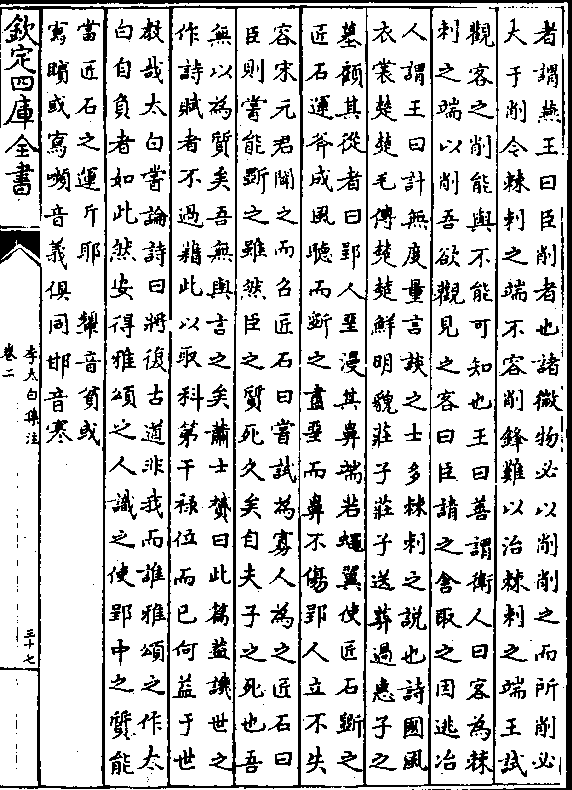 者謂燕王曰臣削者也諸微物必以削削之而所削必
大于削令棘刺之端不容削鋒難以治棘刺之端王試
觀客之削能與不能可知也王曰善謂衛人曰客為棘
刺之端以削吾欲觀見之客曰臣請之舍取之因逃冶
人謂王曰計無度量言談之士多棘刺之說也詩國風
衣裳楚楚毛傳楚楚鮮明貌莊子莊子送葬過惠子之
墓顧其從者曰郢人堊漫其鼻端若蠅翼使匠石斲之
匠石運斧成風聽而斲之盡堊而鼻不傷郢人立不失
容宋元君聞之而召匠石曰嘗試為寡人為之匠石曰
臣則嘗能斲之雖然臣之質死久矣自夫子之死也吾
無以為質矣吾無與言之矣蕭士贇曰此篇益譏世之
作詩賦者不過藉此以取科第干祿位而已何益于世
教哉太白嘗論詩曰將復古道非我而誰雅頌之作太
白自負者如此然安得雅頌之人識之使郢中之質能
當匠石之運斤耶 顰音貧或
寫矉或寫嚬音義俱同邯音寒
欽定四庫全書
李太白集注
卷二
三十七